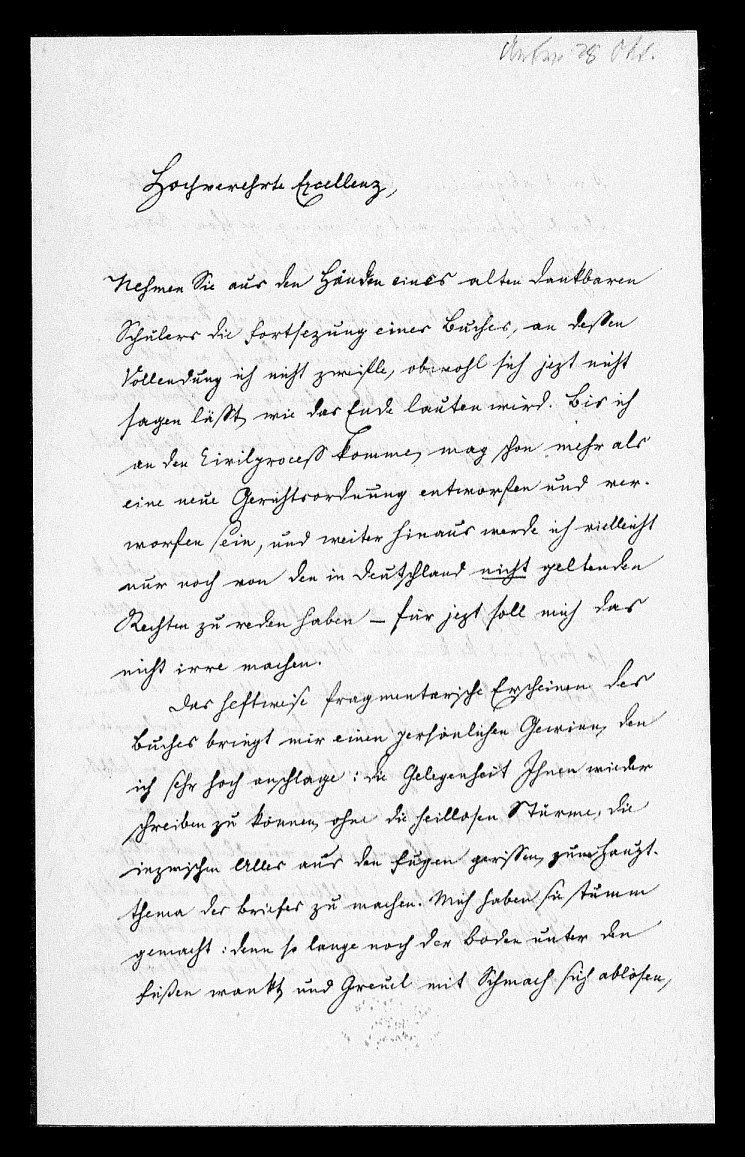 28 Okt.
Hochverehrte Excellenz,
Nehmen Sie aus den Händen eines alten dankbaren
Schülers die Fortsezung eines Buches, an dessen
Vollendung ich nicht zweifle, obwohl sich jezt nicht
sagen läßt, wie das Ende lauten wird. Bis ich
an den Civilproceß komme, mag schon mehr als
eine neue Gerichtsordnung entworfen und ver-
worfen sein, und weiter hinaus werde ich vielleicht
nur noch von den in Deutschland nicht geltenden
Rechten zu reden haben – für jezt soll mich das
nicht irre machen.
Das heftweise fragmentarische Erscheinen des
Buches bringt mir einen persönlichen Gewinn, den
ich sehr hoch anschlage: die Gelegenheit Ihnen wieder
schreiben zu können, ohne die heillosen Stürme, die
inzwischen Alles aus den Fugen gerissen, zum Haupt-
thema des Briefes zu machen. Mich haben sie stumm
gemacht: denn so lange noch der Boden unter den
Füßen wankt, und Greuel mit Schmach sich ablösen,